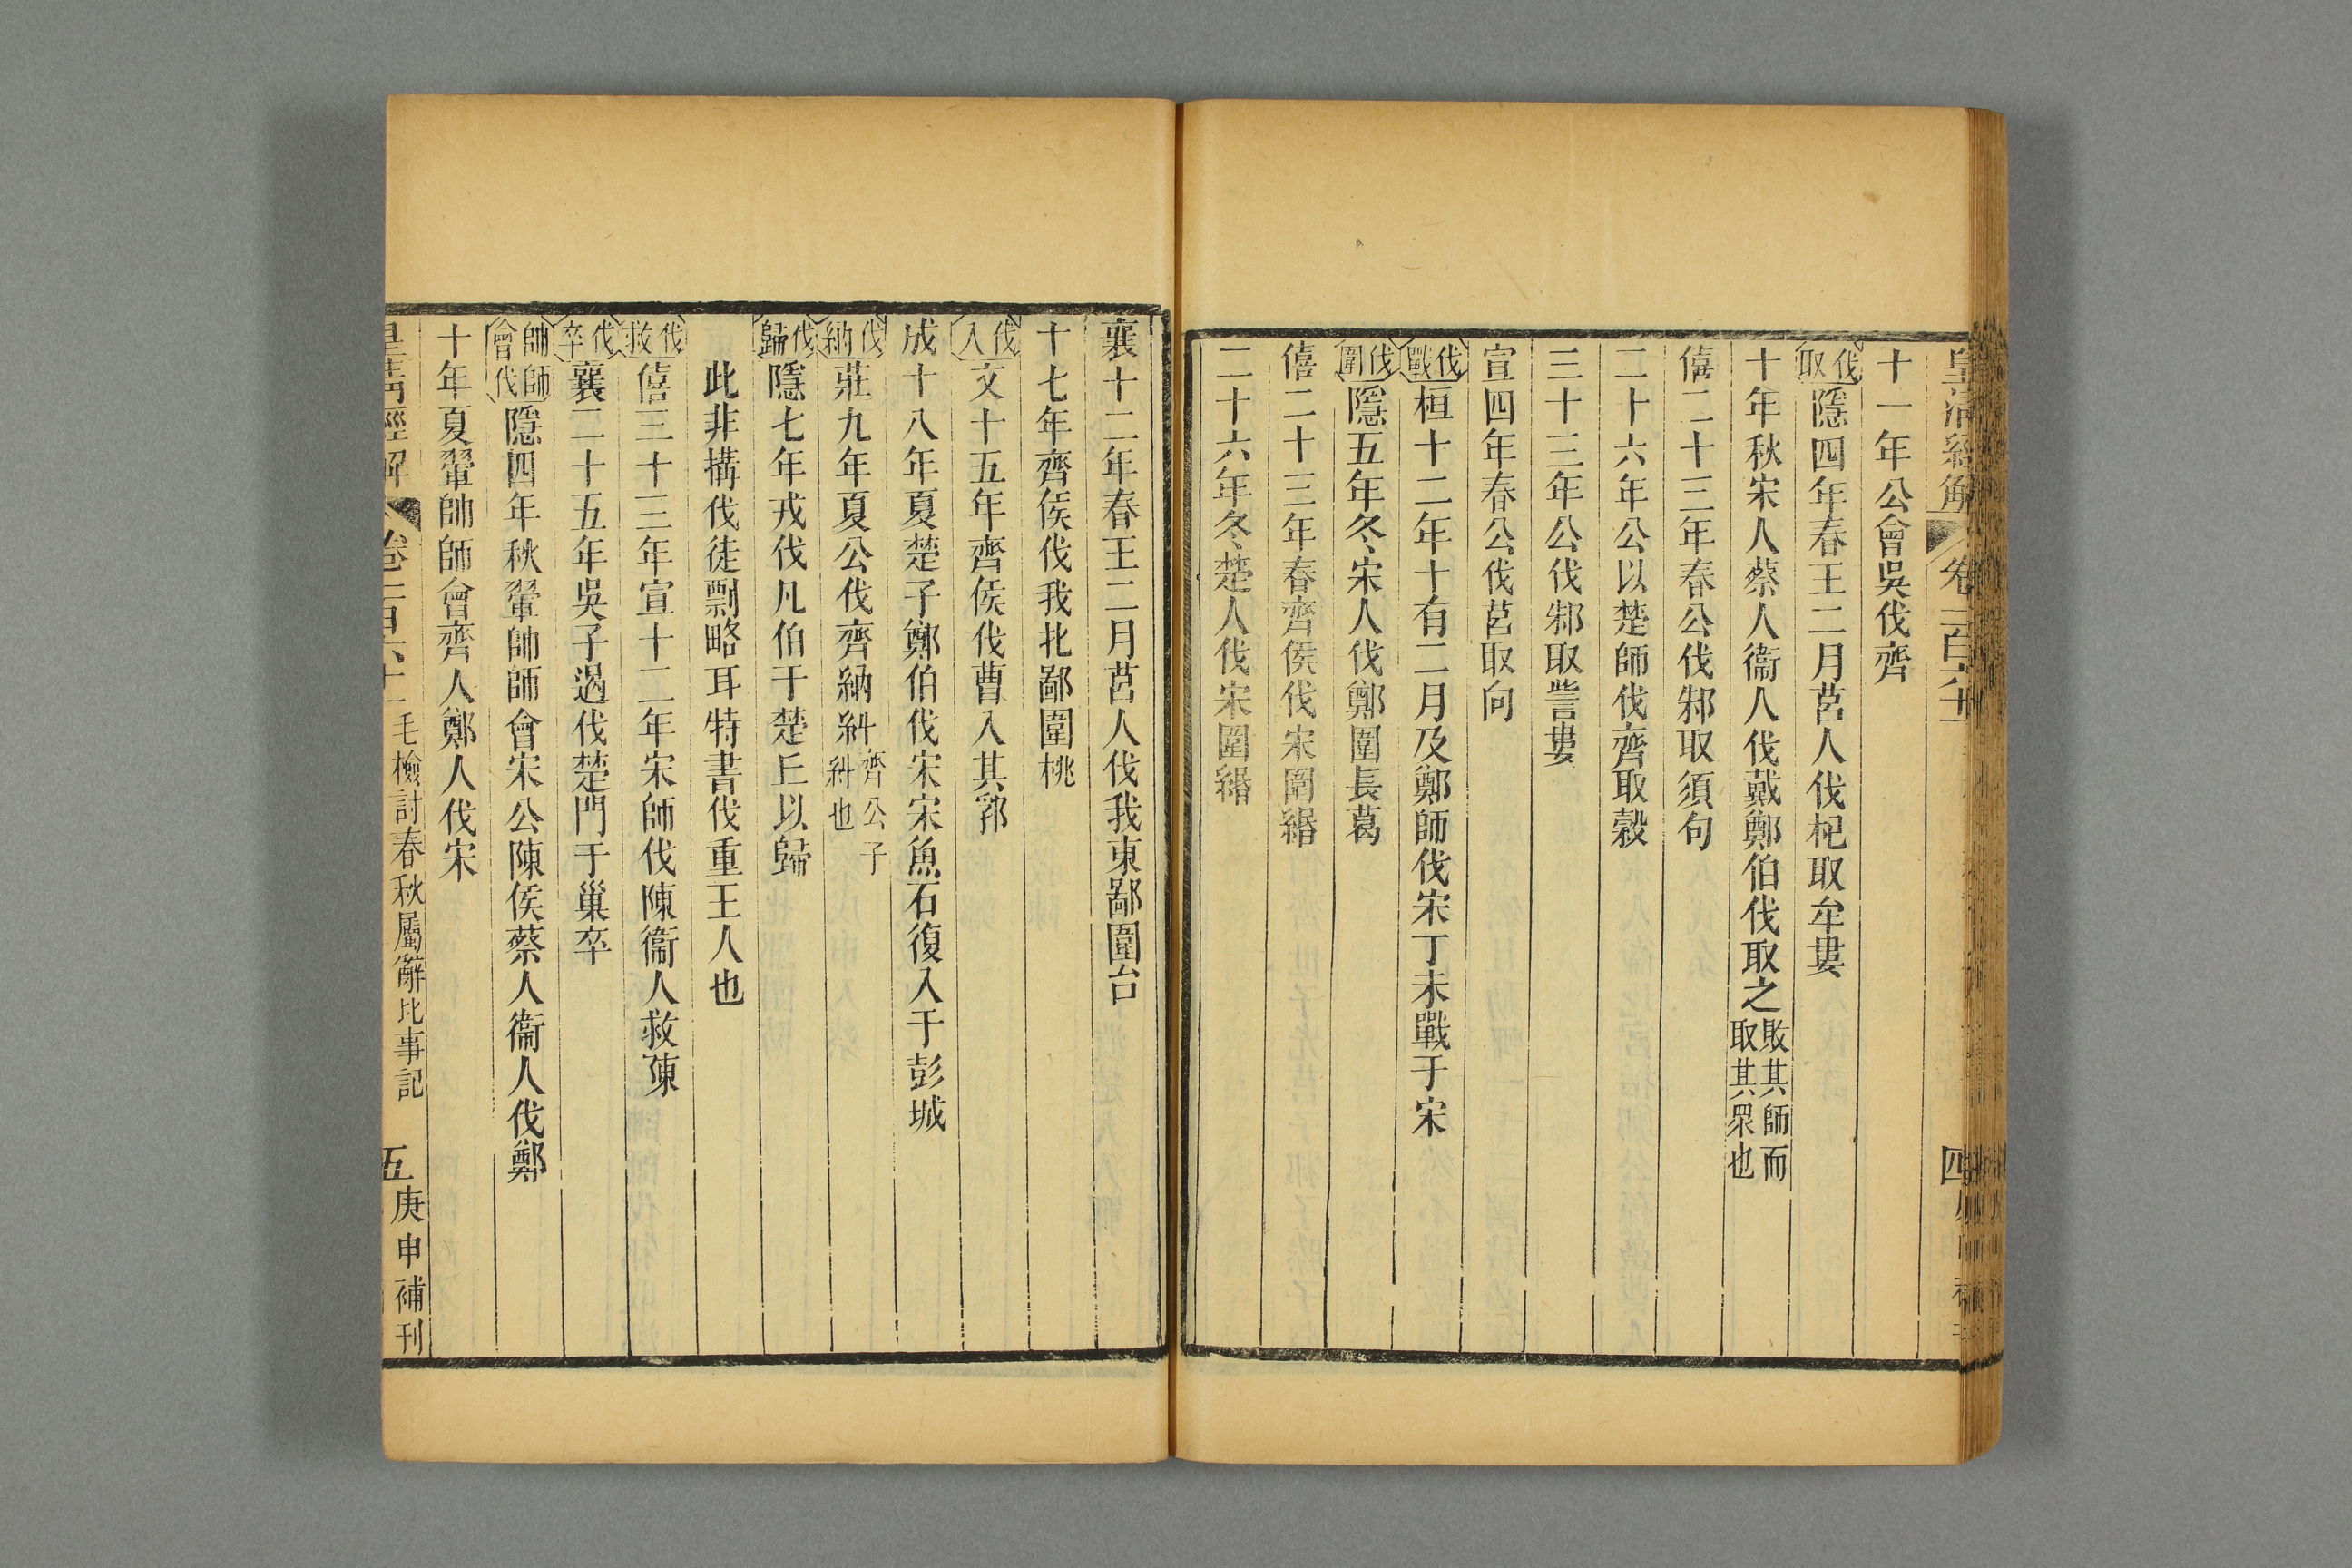 皇清經解
卷一百六十一
四
十一年公會吳伐齊
伐取隱四年春王二月莒人伐杞取牟婁
十年秋宋人蔡人衞人伐戴鄭伯伐取之敗其師而取其眾也
僖二十三年春公伐邾取須句
二十六年公以楚師伐齊取穀
三十三年公伐邾取訾婁
宣四年春公伐莒取向
伐戰桓十二年十有二月及鄭師伐宋丁未戰于宋
伐圍隱五年冬宋人伐鄭圍長葛
僖二十三年春齊侯伐宋圍緡
二十六年冬楚人伐宋圍緡
襄十二年春王二月莒人伐我東鄙圍台
十七年齊侯伐我北鄙圍桃
伐入文十五年齊侯伐曹入其郛
成十八年夏楚子鄭伯伐宋宋魚石復入于彭城
伐納莊九年夏公伐齊納糾齊公子糾也
伐歸隱七年戎伐凡伯于楚丘以歸
此非搆伐徒剽略耳特書伐重王人也
伐救僖三十三年宣十二年宋師伐陳衞人救陳
伐卒襄二十五年吳子遏伐楚門于巢卒
帥師會伐隱四年秋翬帥師會宋公陳侯蔡人衞人伐鄭
十年夏翬帥師會齊人鄭人伐宋
皇清經解
卷一百六十一
毛檢討春秋屬辭比事記
五
庚申補刊